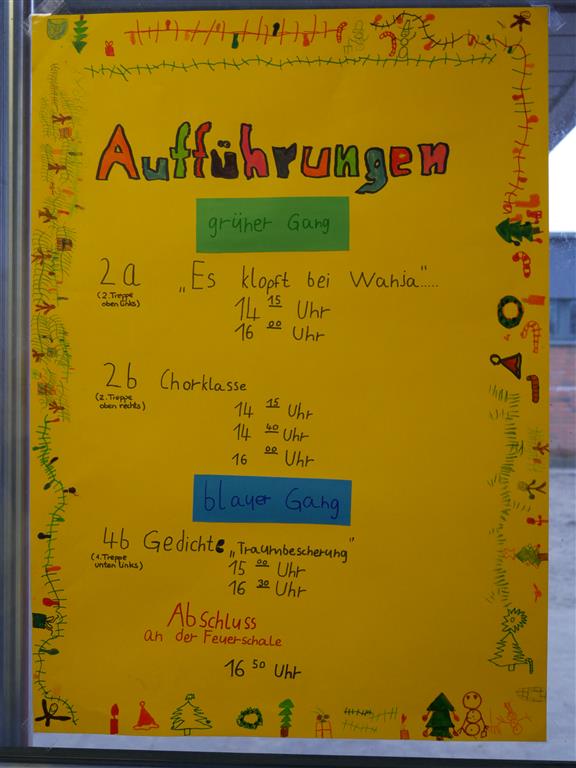 Aufführungen
grüner Gang
2a „Es klopft bei Wanja".....
(2.Treppe
oben links)
14 15 Uhr
16 00 Uhr
2b Chorklasse
(2. Treppe
oben rechts)
14 15 Uhr
14 40 Uhr
16 00 Uhr
blauer Gang
4b Gedichte „Traumbescherung"
(1. Treppe
unten links)
15 00 Uhr
16 30 Uhr
Abschluss
an der Feuerschale
16 50 Uhr